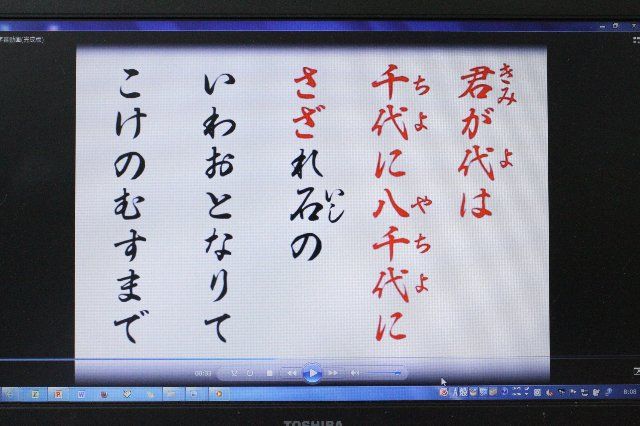 君が代は
きみ よ
千代に八千代に
ちよ やちよ
さざれ石の
いし
いわおとなりて
こけのむすまで
00:33
8:08
TOSHIBA